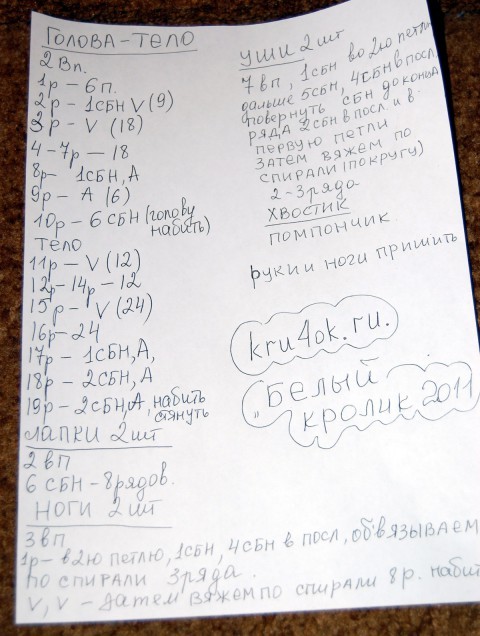 ГОЛОВА-ТЕЛО
2 Вп.
1р-6п.
2р-1СБН V(9)
3р-V(18)
4-7р-18
8р-1СБН,А
9р-А(6)
10р-6СБН(голову
набить)
Тело
11р-V(12)
12р-14р-12
15р-V(24)
16р-24
17р-1СБН,А,
18р-2СБН,А
19р-2СБН,А, набить
стянуть
ЛАПКИ 2шт
2 ВП
6 СБН-8рядов.
НОГИ 2шт
3 ВП
1р-в 2ю петлю, 1СБН, 4СБН в посл, обвязываем
по спирали 3ряда.
V, V - затем вяжем по спирали 8р. набит
УШИ 2шт
7 вп, 1сбн во 2ю петлю
дальше 5сбн, 4сбн в посл
повернуть сбн до конца
ряда 2сбн в посл. и в.
первую петли
затем вяжем по
спирали (по кругу)
2-3ряда
ХВОСТИК
помпончик.
руки и ноги пришить
kru4ok.ru.
„БЕЛЫЙ
КРОЛИК 2011